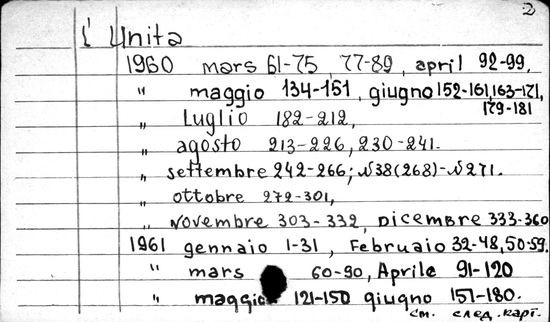 2
L' Unita
1960 mars 61-75, 77-89, april 92-99,
" maggio 134-151, giugno 152-161, 163-171,
179-181
" Luglio 182-212,
" agosto 213-226, 230-241.
" settembre 242-266; N38(268)-N271.
" ottobre 272-301,
" novembre 303-332, Dicembre 333-360
1961 gennaio 1-31, Februaio 32-48, 50-59.
" mars 60-90, Aprile 91-120
" maggio 121-150 giugno 151-180.
см. след. карт.